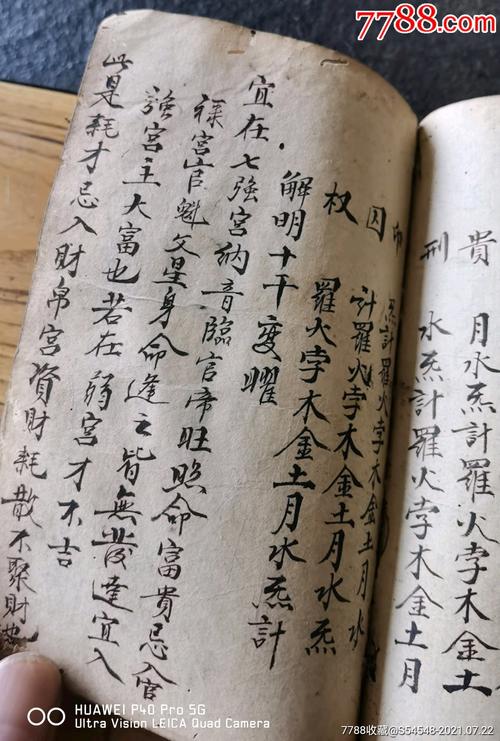 7788.com
貴 月水炁計羅火孛木金土
刑 水炁計羅火孛木金土月
印 炁計羅
囚 計羅火孛木金土月水
权 羅火孛木金土月水炁
羅火孛木金土月水炁計
解明十干变曜
宜在七強宮納音臨官帝旺照命富貴忌入官
祿宮官魁文星身命逢之皆無發達宜入
強宮主大富也若在弱宮才不吉
此是耗才忌入財帛宮資財耗散不聚財也
HUAWEI P40 Pro 5G
Ultra Vision LEICA Quad Camera
7788收藏@S54548-2021.07.22